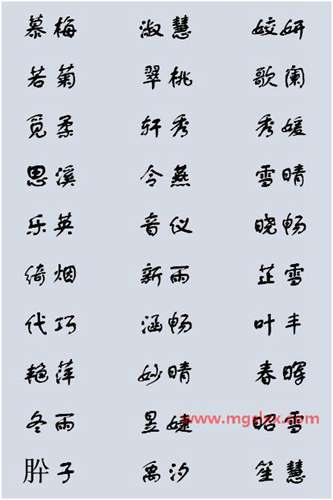 慕梅 淑慧 姣妍
若菊 翠桃 歌阑
觅柔 轩秀 秀媛
思溪 令燕 雪晴
乐英 音仪 晓畅
绮烟 新雨 芷雪
代巧 涵畅 叶丰
艳萍 妙晴 春晖
冬雨 昱婕 昭雪
子 禹汐 笙慧